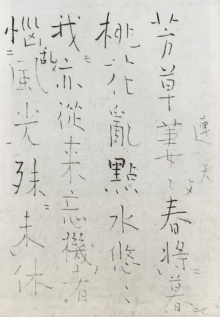 連天
芳草萋〻春將暮
桃花亂點水悠〻
我亦從来忘機者
惱亂風光殊未休